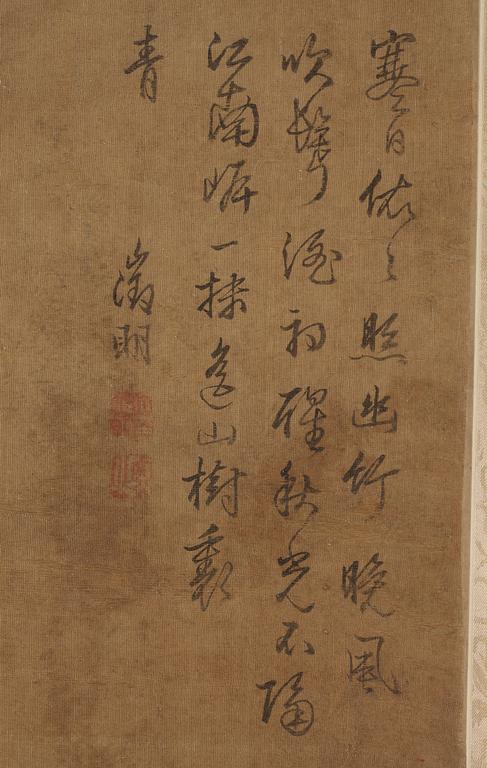 寒日依〻照幽竹晚風
吹鬢酒初醒秋光不隔
江南岸一抹遠山樹裏
青
徵明